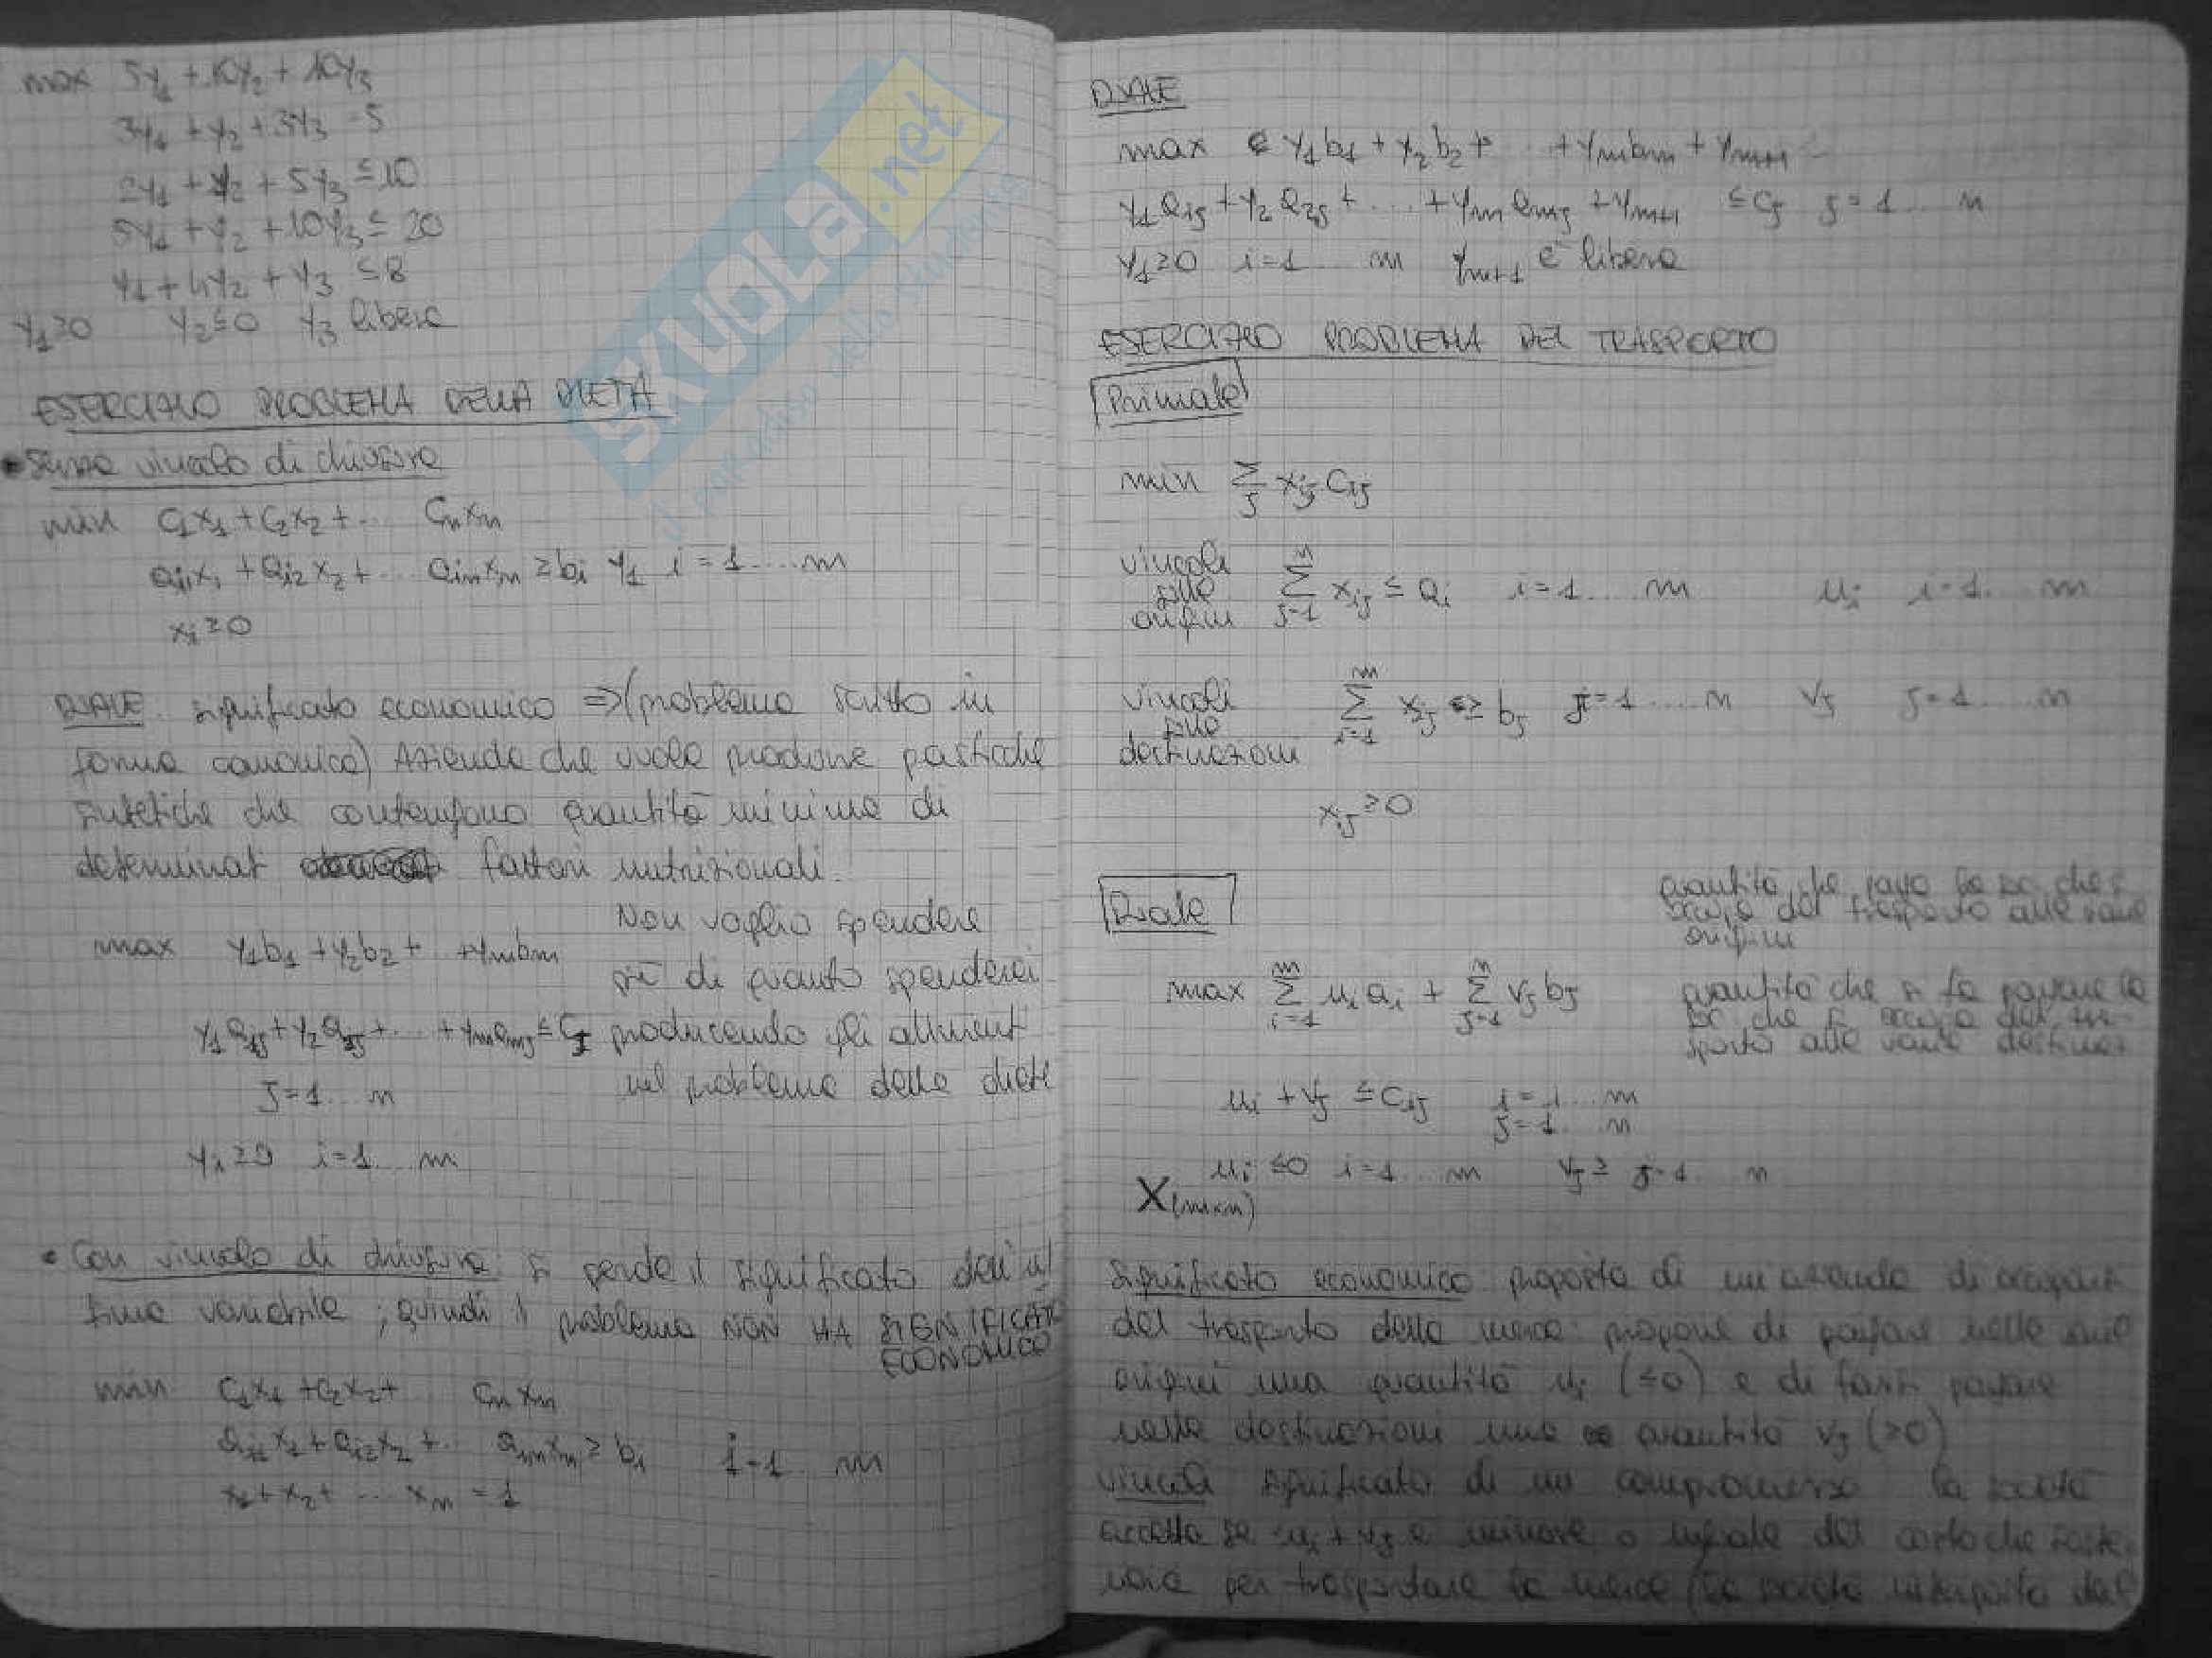 max 5y₁ + 10y₂ + 10y₃
3y₁ + y₂ + 3y₃ = 5
2y₁ + y₂ + 5y₃ ≤ 10
5y₁ + y₂ + 10y₃ ≤ 20
y₁ + 4y₂ + y₃ ≤ 8
y₁ ≥ 0 y₂ ≤ 0 y₃ libera
ESERCIZIO PROBLEMA DELLA DIETA
• Senza vincolo di chiusura
min c₁x₁ + c₂x₂ + ... cₙxₙ
aᵢ₁x₁ + aᵢ₂x₂ + ... aᵢₙxₙ ≥ bᵢ y₁ i = 1 .... m
xᵢ ≥ 0
DUALE: significato economico => (problema scritto in
forma canonica) Azienda che vuole produrre pasticche
sintetiche che contengono quantità minima di
determinat fattori nutrizionali.
max y₁b₁ + y₂b₂ + + yₘbₘ
y₁a₁ⱼ + y₂a₂ⱼ + ... + yₘaₘⱼ ≤ cⱼ
j = 1 ... n
yᵢ ≥ 0 i = 1 ... m
Non voglio spendere
più di quanto spenderei
producendo gli alimenti
nel problema della dieta
• Con vincolo di chiusura: si perde il significato dell'ul
tima variabile; quindi il problema NON HA SIGNIFICATO
ECONOMICO
min c₁x₁ + c₂x₂ + cₙxₙ
aᵢ₁x₁ + aᵢ₂x₂ + ... aᵢₙxₙ ≥ bᵢ i = 1 m
x₁ + x₂ + ... xₙ = 1
DUALE
max y₁b₁ + y₂b₂ + ... + yₘbₘ + yₘ₊₁
y₁a₁ⱼ + y₂a₂ⱼ + ... + yₘaₘⱼ + yₘ₊₁ ≤ cⱼ j = 1 ... n
y₁ ≥ 0 i = 1 m yₘ₊₁ è libera
ESERCIZIO PROBLEMA DEL TRASPORTO
Primale
min Σⱼ xᵢⱼ cᵢⱼ
vincoli sulle origini Σⱼ₌₁ⁿ xᵢⱼ ≤ aᵢ i = 1 ... m uᵢ i = 1 ... m
vincoli sulle destinazioni Σᵢ₌₁ᵐ xᵢⱼ ≥ bⱼ j = 1 .... n vⱼ j = 1 .... n
xᵢⱼ ≥ 0
Duale
quantità che paga la soc che si
occupa del trasporto alle varie
origini
max Σᵢ₌₁ᵐ uᵢaᵢ + Σⱼ₌₁ⁿ vⱼbⱼ
quantità che si fa pagare la
soc che si occupa del tra-
sporto alle varie destinaz
uᵢ + vⱼ ≤ cᵢⱼ i = 1 ... m
j = 1 ... n
uᵢ ≤ 0 i = 1 ... m vⱼ ≥ j = 1 ... n
X(m×n)
Significato economico: proposta di un'azienda di occuparsi
del trasporto della merce: propone di pagare nelle sue
origini una quantità uᵢ (≤0) e di farsi pagare
nelle destinazioni una quantità vⱼ (>0)
vincoli significato di un compromesso la società
accetta se uᵢ + vⱼ è minore o uguale del costo che soste
per trasportare la merce (la società
SKUOLA.net
il paradiso dello studente